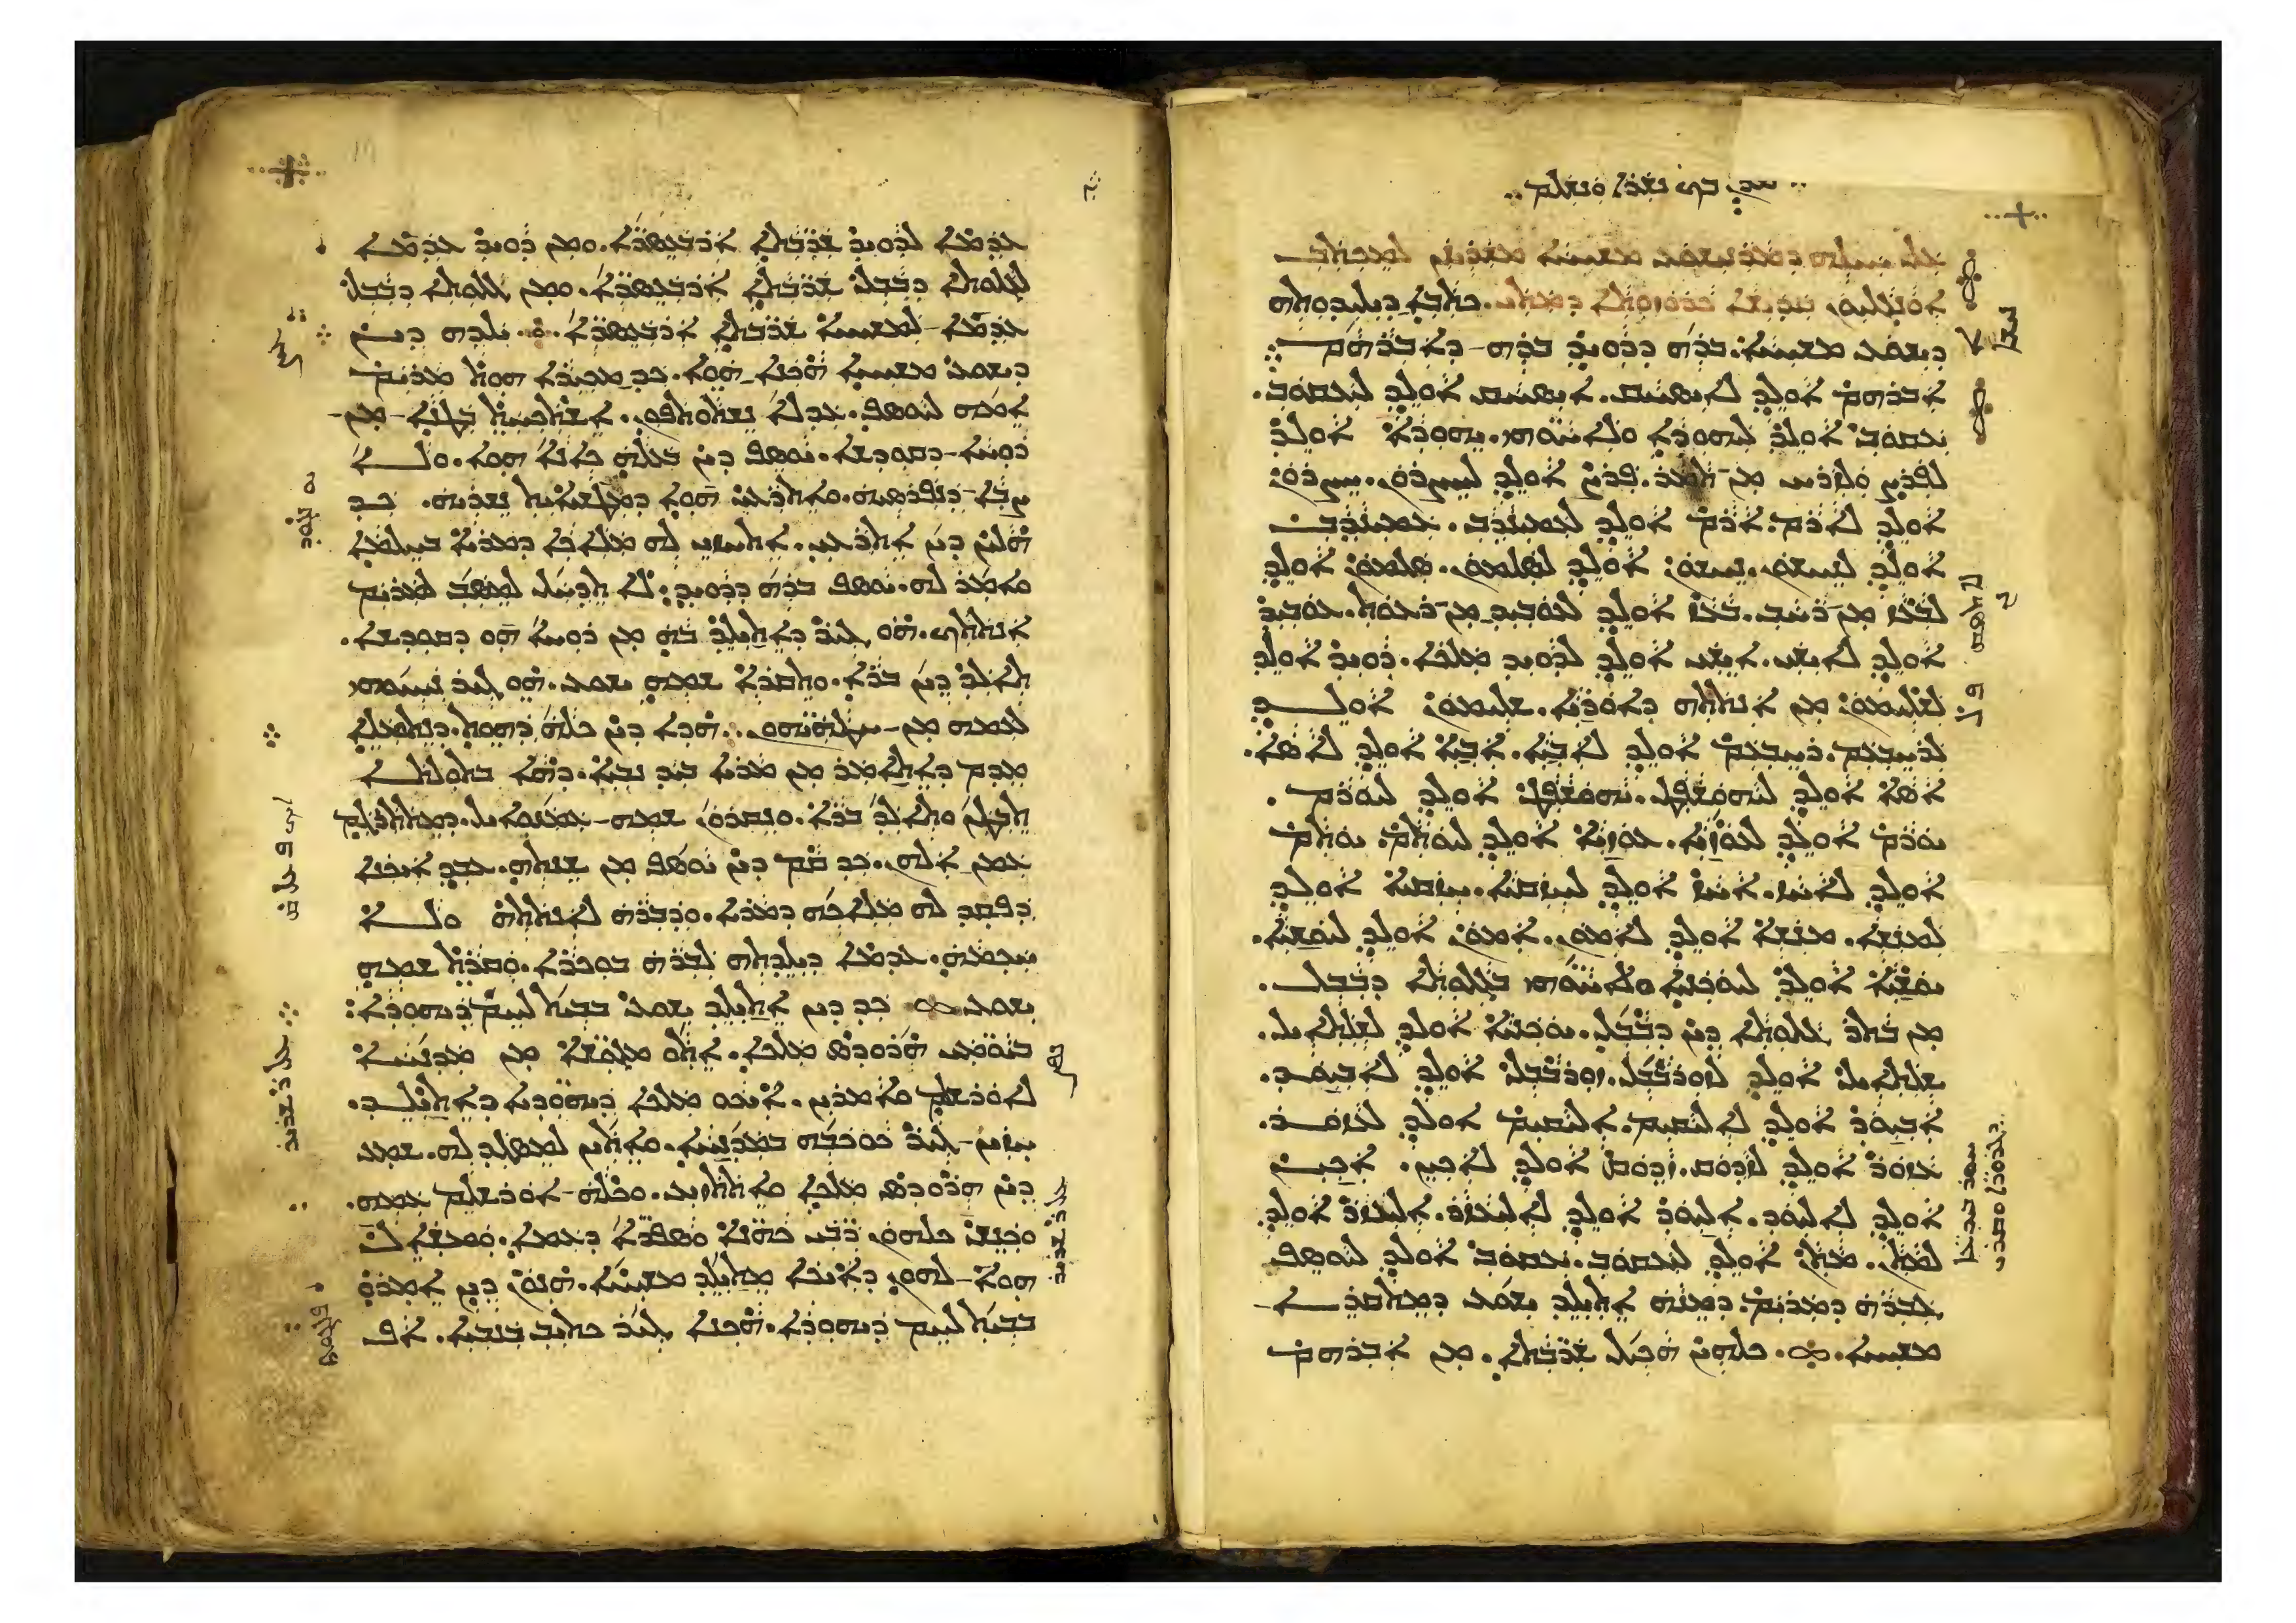 ܥܠ ܚܝܠܗ ܕܡܪܢ ܝܫܘܥ ܡܫܝܚܐ ܡܫܪܝܢܢ ܠܡܟܬܒ
ܐܘܢܓܠܝܘܢ ܩܕܝܫܐ ܟܪܘܙܘܬܐ ܕܡܬܝ. ܟܬܒܐ ܕܝܠܝܕܘܬܗ
ܕܝܫܘܥ ܡܫܝܚܐ. ܒܪܗ ܕܕܘܝܕ ܒܪܗ ܕܐܒܪܗܡ܀
ܐܒܪܗܡ ܐܘܠܕ ܠܐܝܣܚܩ. ܐܝܣܚܩ ܐܘܠܕ ܠܝܥܩܘܒ.
ܝܥܩܘܒ ܐܘܠܕ ܠܝܗܘܕܐ ܘܠܐܚܘܗܝ. ܝܗܘܕܐ ܐܘܠܕ
ܠܦܪܨ ܘܠܙܪܚ ܡܢ ܬܡܪ. ܦܪܨ ܐܘܠܕ ܠܚܨܪܘܢ. ܚܨܪܘܢ
ܐܘܠܕ ܠܐܪܡ. ܐܪܡ ܐܘܠܕ ܠܥܡܝܢܕܒ. ܥܡܝܢܕܒ
ܐܘܠܕ ܠܢܚܫܘܢ. ܢܚܫܘܢ ܐܘܠܕ ܠܣܠܡܘܢ. ܣܠܡܘܢ ܐܘܠܕ
ܠܒܥܙ ܡܢ ܪܚܒ. ܒܥܙ ܐܘܠܕ ܠܥܘܒܝܕ ܡܢ ܪܥܘܬ. ܥܘܒܝܕ
ܐܘܠܕ ܠܐܝܫܝ. ܐܝܫܝ ܐܘܠܕ ܠܕܘܝܕ ܡܠܟܐ. ܕܘܝܕ ܐܘܠܕ
ܠܫܠܝܡܘܢ ܡܢ ܐܢܬܬܗ ܕܐܘܪܝܐ. ܫܠܝܡܘܢ ܐܘܠܕ
ܠܪܚܒܥܡ. ܪܚܒܥܡ ܐܘܠܕ ܠܐܒܝܐ. ܐܒܝܐ ܐܘܠܕ ܠܐܣܐ.
ܐܣܐ ܐܘܠܕ ܠܝܗܘܫܦܛ. ܝܗܘܫܦܛ ܐܘܠܕ ܠܝܘܪܡ.
ܝܘܪܡ ܐܘܠܕ ܠܥܘܙܝܐ. ܥܘܙܝܐ ܐܘܠܕ ܠܝܘܬܡ. ܝܘܬܡ
ܐܘܠܕ ܠܐܚܙ. ܐܚܙ ܐܘܠܕ ܠܚܙܩܝܐ. ܚܙܩܝܐ ܐܘܠܕ
ܠܡܢܫܐ. ܡܢܫܐ ܐܘܠܕ ܠܐܡܘܢ. ܐܡܘܢ ܐܘܠܕ ܠܝܘܫܝܐ.
ܝܘܫܝܐ ܐܘܠܕ ܠܝܘܟܢܝܐ ܘܠܐܚܘܗܝ ܒܓܠܘܬܐ ܕܒܒܠ.
ܡܢ ܒܬܪ ܓܠܘܬܐ ܕܝܢ ܕܒܒܠ. ܝܘܟܢܝܐ ܐܘܠܕ ܠܫܠܬܐܝܠ.
ܫܠܬܐܝܠ ܐܘܠܕ ܠܙܘܪܒܒܠ. ܙܘܪܒܒܠ ܐܘܠܕ ܠܐܒܝܘܕ.
ܐܒܝܘܕ ܐܘܠܕ ܠܐܠܝܩܝܡ. ܐܠܝܩܝܡ ܐܘܠܕ ܠܥܙܘܪ.
ܥܙܘܪ ܐܘܠܕ ܠܙܕܘܩ. ܙܕܘܩ ܐܘܠܕ ܠܐܟܝܢ. ܐܟܝܢ
ܐܘܠܕ ܠܐܠܝܘܕ. ܐܠܝܘܕ ܐܘܠܕ ܠܐܠܝܥܙܪ. ܐܠܝܥܙܪ ܐܘܠܕ
ܠܡܬܢ. ܡܬܢ ܐܘܠܕ ܠܝܥܩܘܒ. ܝܥܩܘܒ ܐܘܠܕ ܠܝܘܣܦ
ܓܒܪܗ ܕܡܪܝܡ. ܕܡܢܗ ܐܬܝܠܕ ܝܫܘܥ ܕܡܬܩܪܐ
ܡܫܝܚܐ. ܟܠܗܝܢ ܗܟܝܠ ܫܪܒܬܐ. ܡܢ ܐܒܪܗܡ
ܥܕܡܐ ܠܕܘܝܕ ܫܪܒܬܐ ܐܪܒܥܣܪܐ. ܘܡܢ ܕܘܝܕ ܥܕܡܐ
ܠܓܠܘܬܐ ܕܒܒܠ ܫܪܒܬܐ ܐܪܒܥܣܪܐ. ܘܡܢ ܓܠܘܬܐ ܕܒܒܠ
ܥܕܡܐ ܠܡܫܝܚܐ ܫܪܒܬܐ ܐܪܒܥܣܪܐ. ܝܠܕܗ ܕܝܢ
ܕܝܫܘܥ ܡܫܝܚܐ ܗܟܢܐ ܗܘܐ. ܟܕ ܡܟܝܪܐ ܗܘܬ ܡܪܝܡ
ܐܡܗ ܠܝܘܣܦ. ܥܕܠܐ ܢܫܬܘܬܦܘܢ. ܐܫܬܟܚܬ ܒܛܢܐ ܡܢ
ܪܘܚܐ ܕܩܘܕܫܐ. ܝܘܣܦ ܕܝܢ ܒܥܠܗ ܟܐܢܐ ܗܘܐ. ܘܠܐ
ܨܒܐ ܕܢܦܪܣܝܗ. ܘܐܬܪܥܝ ܗܘܐ ܕܡܛܫܝܐܝܬ ܢܫܪܝܗ. ܟܕ
ܗܠܝܢ ܕܝܢ ܐܬܪܥܝ. ܐܬܚܙܝ ܠܗ ܡܠܐܟܐ ܕܡܪܝܐ ܒܚܠܡܐ
ܘܐܡܪ ܠܗ. ܝܘܣܦ ܒܪܗ ܕܕܘܝܕ. ܠܐ ܬܕܚܠ ܠܡܣܒ ܠܡܪܝܡ
ܐܢܬܬܟ. ܗܘ ܓܝܪ ܕܐܬܝܠܕ ܒܗ ܡܢ ܪܘܚܐ ܗܘ ܕܩܘܕܫܐ.
ܬܐܠܕ ܕܝܢ ܒܪܐ. ܘܬܩܪܐ ܫܡܗ ܝܫܘܥ. ܗܘ ܓܝܪ ܢܚܝܘܗܝ
ܠܥܡܗ ܡܢ ܚܛܗܝܗܘܢ. ܗܕܐ ܕܝܢ ܟܠܗ ܕܗܘܬ. ܕܢܬܡܠܐ
ܡܕܡ ܕܐܬܐܡܪ ܡܢ ܡܪܝܐ ܒܝܕ ܢܒܝܐ. ܕܗܐ ܒܬܘܠܬܐ
ܬܒܛܢ ܘܬܐܠܕ ܒܪܐ. ܘܢܩܪܘܢ ܫܡܗ ܥܡܢܘܐܝܠ. ܕܡܬܬܪܓܡ
ܥܡܢ ܐܠܗܢ. ܟܕ ܩܡ ܕܝܢ ܝܘܣܦ ܡܢ ܫܢܬܗ. ܥܒܕ ܐܝܟܢܐ
ܕܦܩܕ ܠܗ ܡܠܐܟܗ ܕܡܪܝܐ. ܘܕܒܪܗ ܠܐܢܬܬܗ ܘܠܐ
ܚܟܡܗ. ܥܕܡܐ ܕܝܠܕܬܗ ܠܒܪܗ ܒܘܟܪܐ. ܘܩܪܬ ܫܡܗ
ܝܫܘܥ. ܟܕ ܕܝܢ ܐܬܝܠܕ ܝܫܘܥ ܒܒܝܬ ܠܚܡ ܕܝܗܘܕܐ.
ܒܝܘܡܝ ܗܪܘܕܣ ܡܠܟܐ. ܐܬܘ ܡܓܘܫܐ ܡܢ ܡܕܢܚܐ
ܠܐܘܪܫܠܡ ܘܐܡܪܝܢ. ܐܝܟܘ ܡܠܟܐ ܕܝܗܘܕܝܐ ܕܐܬܝܠܕ.
ܚܙܝܢ ܓܝܪ ܟܘܟܒܗ ܒܡܕܢܚܐ. ܘܐܬܝܢ ܠܡܣܓܕ ܠܗ. ܫܡܥ
ܕܝܢ ܗܪܘܕܣ ܡܠܟܐ ܘܐܬܬܙܝܥ. ܘܟܠܗ ܐܘܪܫܠܡ ܥܡܗ.
ܘܟܢܫ ܟܠܗܘܢ ܪܒܝ ܟܗܢܐ ܘܣܦܪܐ ܕܥܡܐ. ܘܡܫܐܠ
ܗܘܐ ܠܗܘܢ ܕܐܝܟܐ ܡܬܝܠܕ ܡܫܝܚܐ. ܗܢܘܢ ܕܝܢ ܐܡܪܘ
ܒܒܝܬ ܠܚܡ ܕܝܗܘܕܐ. ܗܟܢܐ ܓܝܪ ܟܬܝܒ ܒܢܒܝܐ. ܐܦ